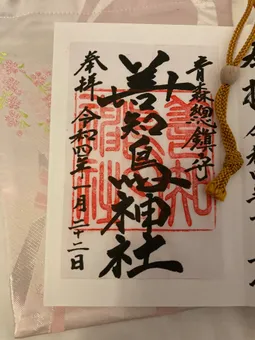 青森總鎮守
善知鳥神社
奉拝 令和四年一月二十二日